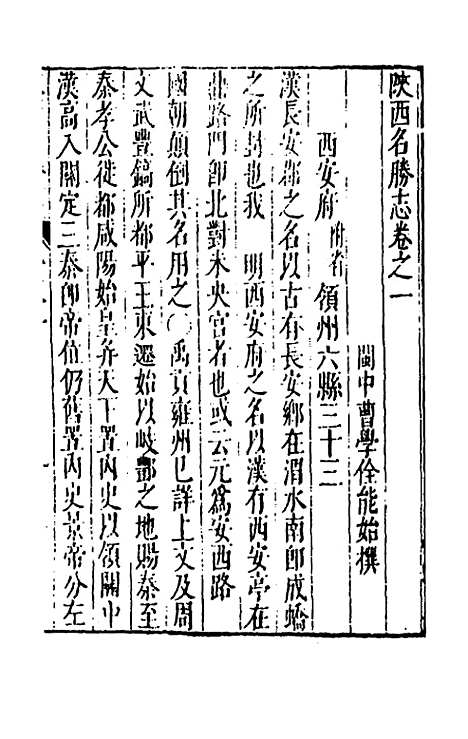 陝西名勝志卷之一
閩中曹學佺能始撰
西安府附省領州六縣三十三
漢長安郡之名以古有長安鄉在渭水南卽成蟜
之所封也我 明西安府之名以漢有西安亭在
路門卽北對未央宮者也或云元爲安西路
國朝顛倒其名用之〇禹貢雍州已詳上文及周
文武豐鎬所都平王東遷始以岐酆之地賜秦至
秦孝公徙都咸陽始皇弁天下置內史以領關中
漢高入關定三秦卽帝位仍舊置內史景帝分左